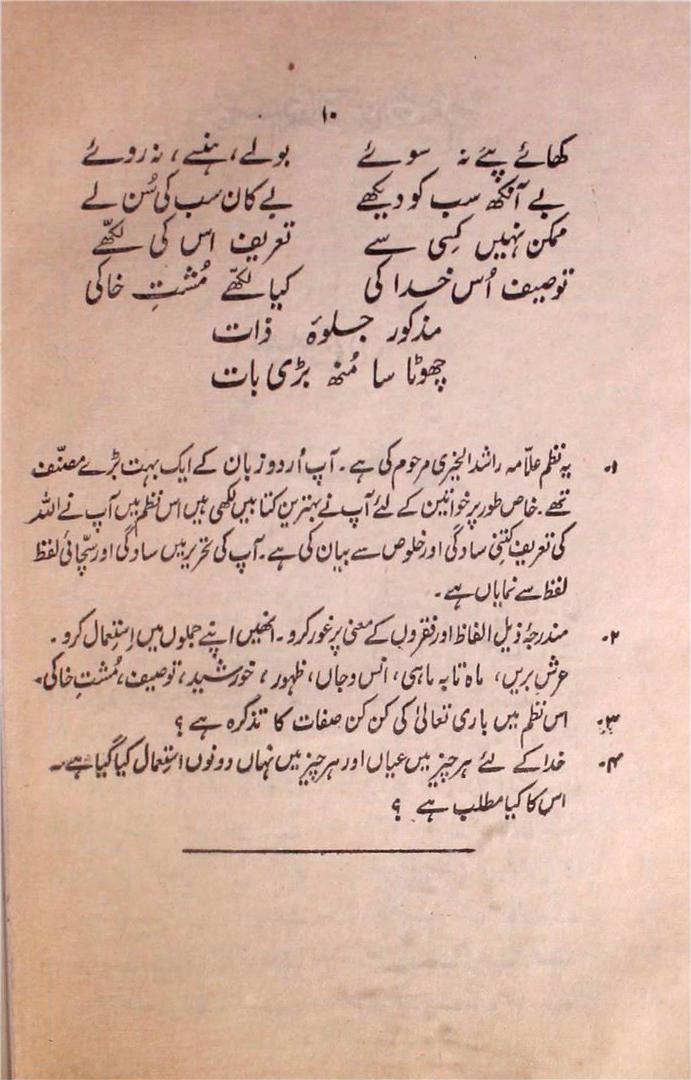 ۱۰
کھائے پئے نہ سوئے بولے، ہنسے، نہ روئے
بے آنکھ سب کو دیکھے بے کان سب کی سُن لے
ممکن نہیں کِسی سے تعریف اس کی لکھّے
توصیف اُس خدا کی کیا لکھّے مُشتِ خاکی
مذکور جلوۂ ذات
چھوٹا سا مُنھ بڑی بات
۱۔ یہ نظم علاّمہ راشد الخیری مرحوم کی ہے۔ آپ اُردو زبان کے ایک بہت بڑے مصنّف
تھے۔ خاص طور پر خواتین کے لئے آپ نے بہترین کتابیں لکھی ہیں اس نظم میں آپ نے اللہ
کی تعریف کتنی سادگی اور خلوص سے بیان کی ہے۔ آپ کی تحریر میں سادگی اور سچّائی لفظ
لفظ سے نمایاں ہے۔
۲۔ مندرجۂ ذیل الفاظ اور فقروں کے معنی پر غور کرو۔ انھیں اپنے جملوں میں اِستِعمال کرو۔
عرشِ بریں، ماہ تا بہ ماہی، انس وجاں، ظہور، خورشید، توصیف، مُشتِ خاکی۔
۳۔ اس نظم میں باری تعالیٰ کی کن کن صفات کا تذکرہ ہے؟
۴۔ خدا کے لئے ہر چیز میں عیاں اور ہر چیز میں نہاں دونوں استِعمال کیا گیا ہے۔
اس کا کیا مطلب ہے؟